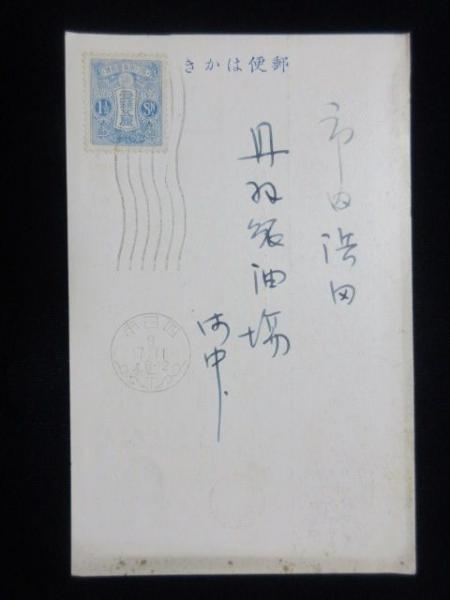 郵便はかき
1½ Sn
市内浜田
丹羽製油場
御中
四日市
9
7.11